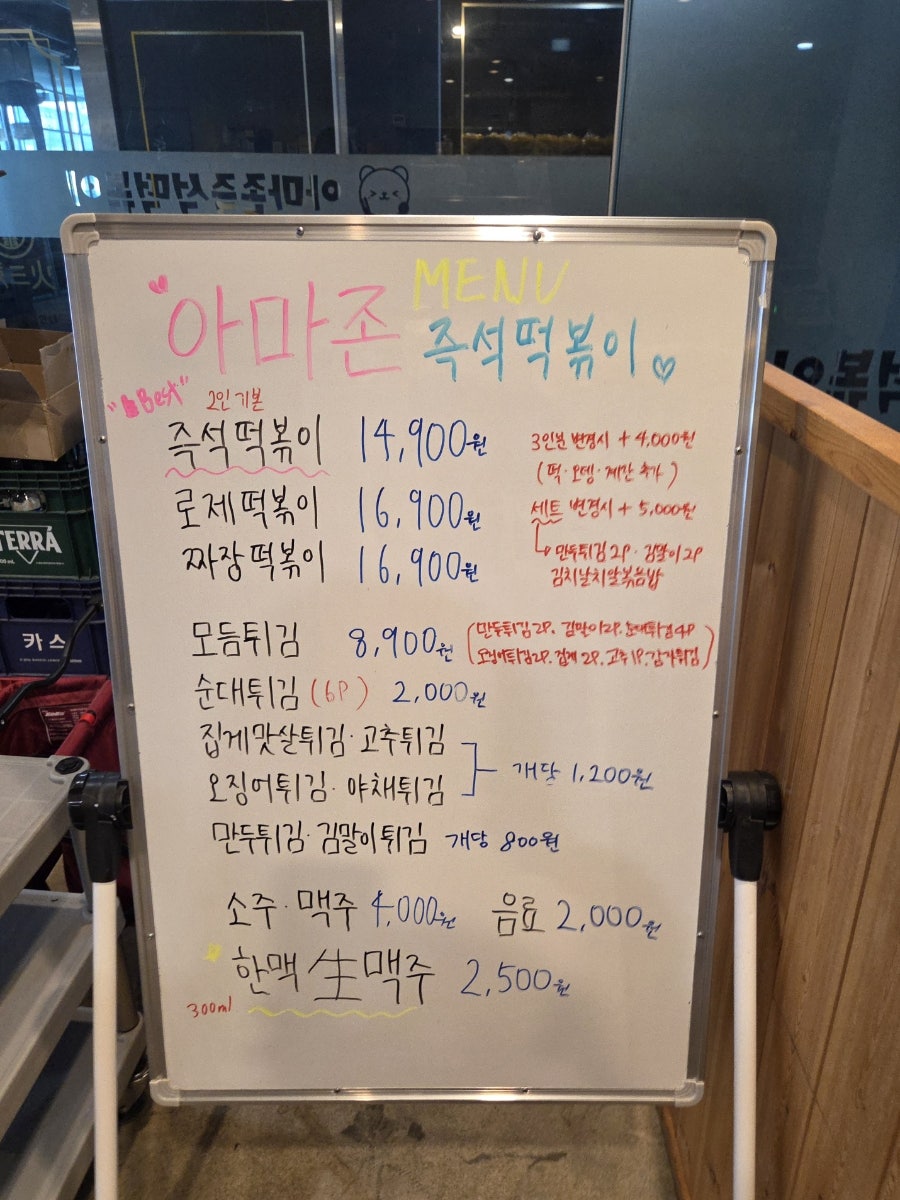 아마존즉석떡볶이
MENU
아마존 즉석떡볶이
"Best"
2인 기본
즉석떡볶이 14,900원
3인분 변경시 + 4,000원
(떡·오뎅·계란 추가)
로제떡볶이 16,900원
세트 변경시 + 5,000원
짜장떡볶이 16,900원
만두튀김 2P · 김말이 2P
김치날치알볶음밥
모듬튀김 8,900원
(만두튀김 2P. 김말이 2P. 순대튀김 4P
오징어튀김 2P. 집게 2P. 고추 1P. 감자튀김)
순대튀김 (6P) 2,000원
집게맛살튀김·고추튀김
오징어튀김·야채튀김
개당 1,200원
만두튀김·김말이튀김 개당 800원
소주·맥주 4,000원 음료 2,000원
한맥 生맥주 2,500원
300ml
TERRA
카스